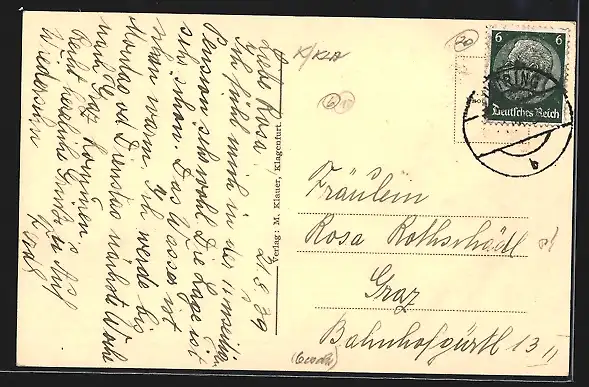 21.8.39
Liebe Rosa
Ich fühl mich in der
Pension sehr wohl Die Lage ist
sehr schön. Das Wasser ist
schon warm. Ich werde bis
Montag od Dienstag nächste Woche
nach Graz kommen
Recht herzliche Grüße u. Auf
Wiedersehn
Verlag: M. Klauer, Klagenfurt
K/Kla
20
6
6 6
Deutsches Reich
b
Fräulein
Rosa Rothschädl
Graz
Bahnhofgürtl 13 II